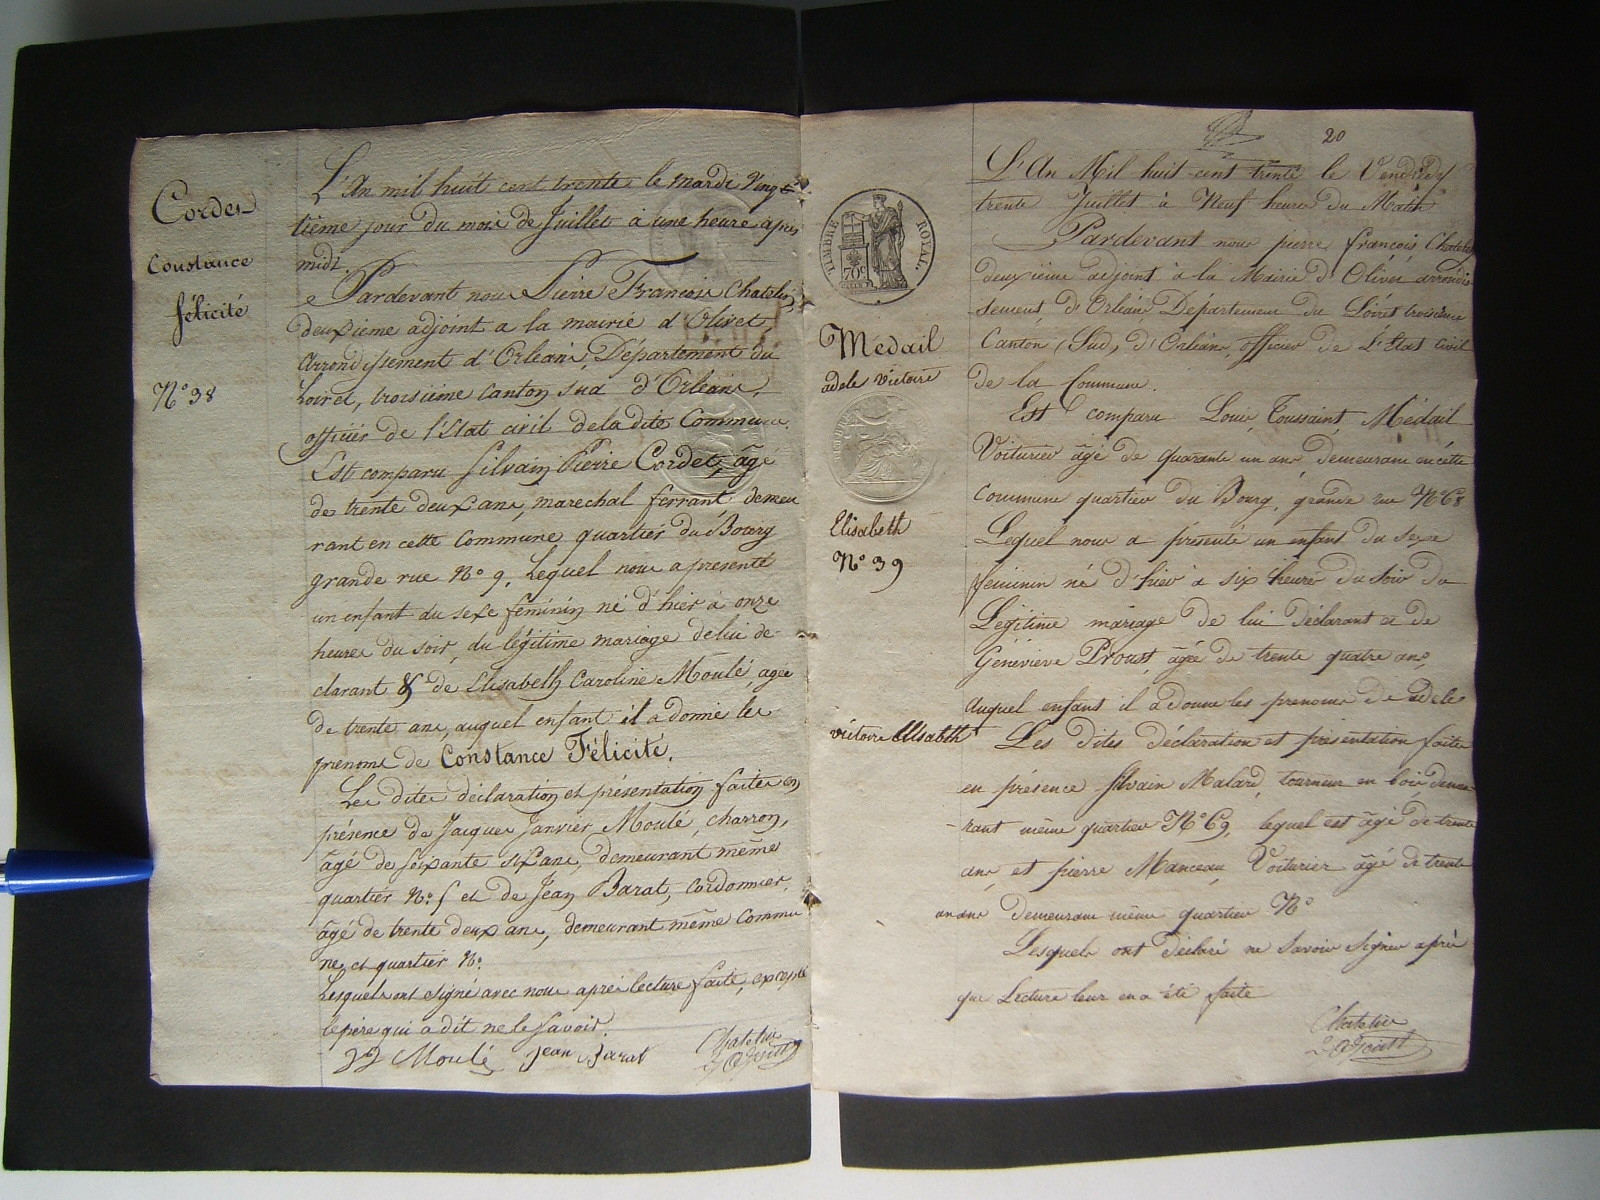 Cordes
Constance
félicité
N.° 38
L'An mil huit cent trente le mardi Vingt
tième jour du mois de Juillet à une heure après
midi.
Pardevant nous Pierre François Chatelin,
deuxieme adjoint a la mairie d'Olivet,
Arrondissement d'Orleans, Département du
Loiret, troisiéme canton sud d'Orleans,
officier de l'Etat civil dela dite Commune.
Est comparu Silvain Pierre Cordet, âgé
de trente deux ans, marechal ferrant demeu
rant en cette Commune quartier du Bourg
grande rue N.° 9. Lequel nous a présenté
un enfant du sexe féminin né d'hier à onze
heures du soir, du légitime mariage de lui dé-
clarant & de Elisabeth Caroline Moulé, agée
de trente ans, auquel enfant il a donné les
prénoms de Constance Félicité.
Les dites déclaration et présentation faites en
présence de Jacques Janvier Moulé, charron,
âgé de soixante six ans, demeurant même
quartier N.° 5 et de Jean Barat, cordonnier,
âgé de trente deux ans, demeurant même Commu
ne et quartier N.°
Lesquels ont signé avec nous après lecture faite, excepté
le père qui a dit ne le savoir.
JJ Moulé Jean Barat Chatelin
Adjoint
20
TIMBRE ROYAL.
70c
Medail
adele victoire
Elisabeth
N.° 39
L'An Mil huit cent trente le Vendredy
trente Juillet à Neuf heures du Matin
Pardevant nous pierre françois Chatelin
deuxième adjoint à la Mairie d'Olivet arrondis
-sement d'Orléans Département du Loiret troisième
Canton (Sud) d'Orléans, officier de l'Etat civil
de la Commune.
Est comparu Louis Toussaint Médail
Voiturier âgé de quarante un ans, demeurant en cette
Commune quartier du Bourg, grande rue N.° 68
Lequel nous a présenté un enfant du sexe
féminin né d'hier à six heures du soir du
Légitime mariage de lui déclarant et de
Geneviève Proust, âgée de trente quatre ans,
auquel enfant il a donné les prenoms de adele
victoire Elisabeth Les dites déclaration et présentation faites
en présence Silvain Malard, tourneur en bois, demeu-
-rant même quartier N.° 69, lequel est âgé de trente
ans, et pierre Manceau, Voiturier âgé de trente
un ans Demeurant même quartier N.°
Lesquels ont déclaré ne Savoir Signer après
que Lecture leur en a été faite
Chatelin
Adjoint